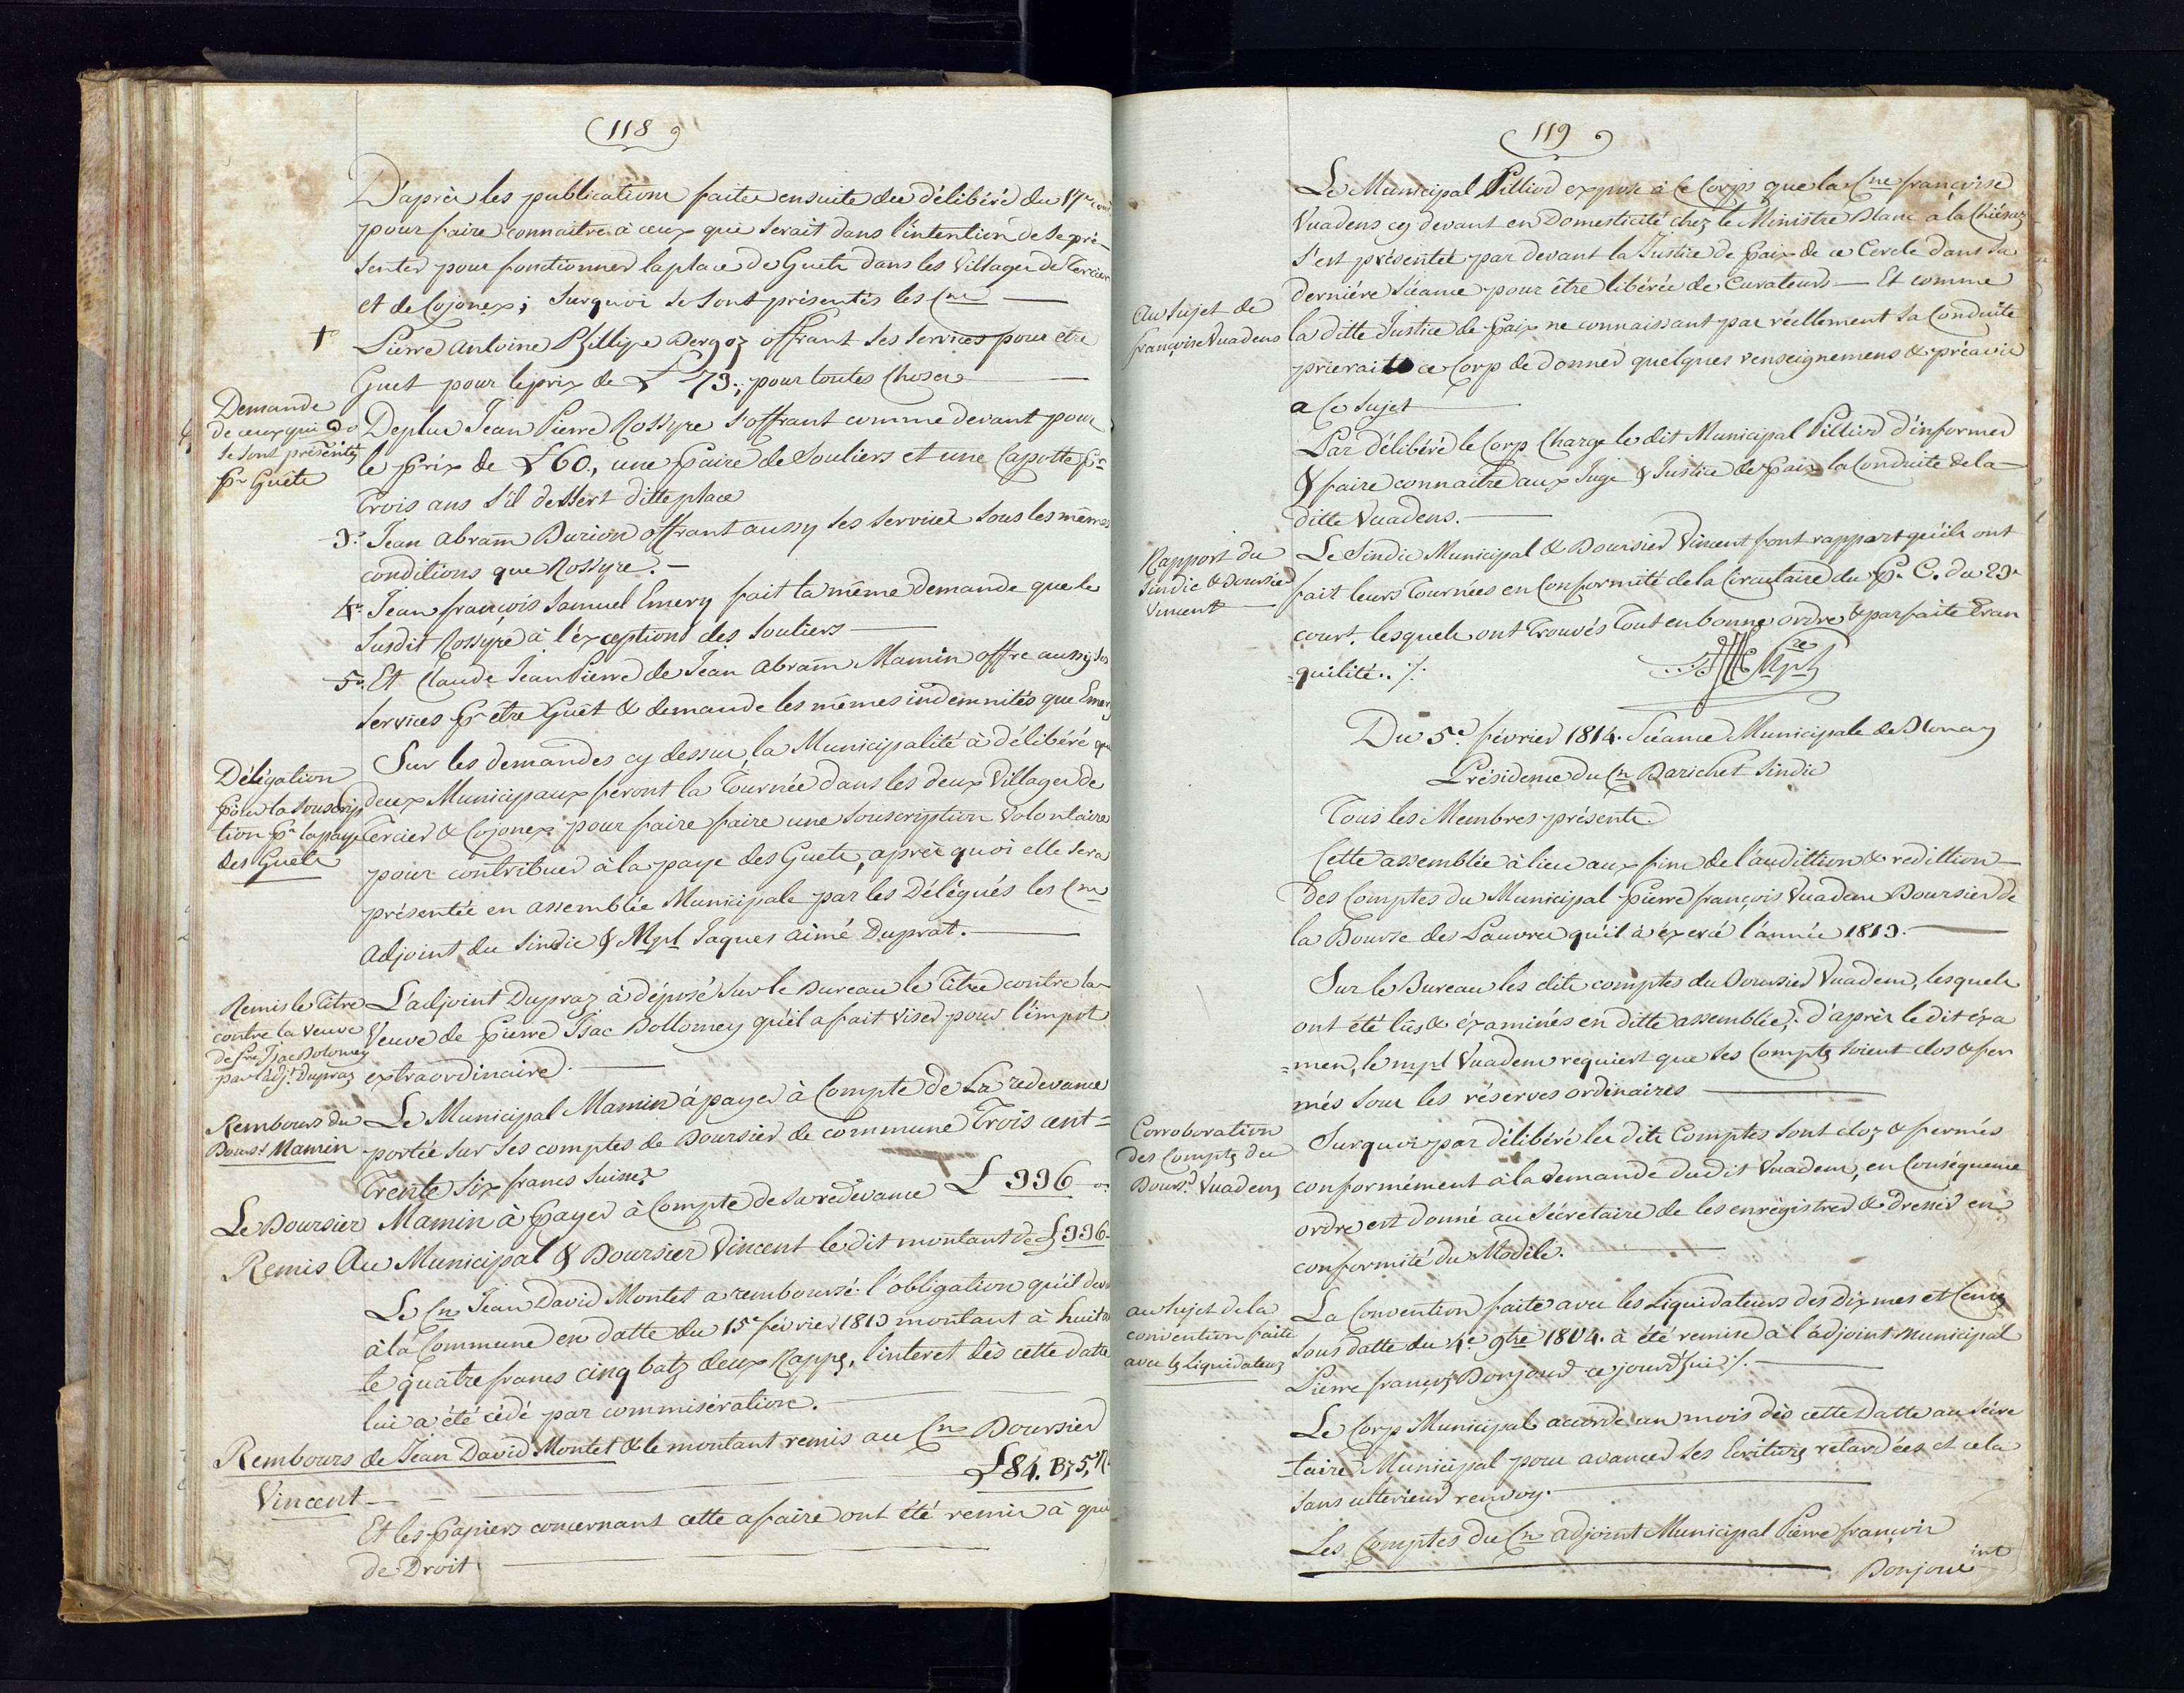 118
D'après les publications faites ensuite du délibéré du 17e cour
pour faire connaitre à ceux qui serait dans l'intention de se pré-
senter pour fonctionner la place de Guets dans les Villages de Tercier
et de Cojonex; Surquoi se sont présentés les Cns
1o Pierre Antoine Phillipe Dergoz offrant ses services pour etre
Guet pour le prix de £ 73., pour toutes choses
Demande
de ceux qui
se sont présentés
pr Guets
2o Deplus Jean Pierre Rossyre s'offrant comme devant pour
le prix de £ 60., une paire de Souliers et une Capotte pr
Trois ans s'il dessert ditte place
3o Jean Abram Durion offrant aussy ses services sous les mêmes
conditions que Rossyre. -
4o Jean françois Samuel Emery fait la même demande que le
Susdit Rossyre à l'exception des Souliers
5o Et Claude Jean Pierre de Jean Abram Mamin offre aussy ses
Services pr etre Guêt & demande les mêmes indemnités que Emery
Délégation
pour la souscrip
tion pr la paye
des Guets
Sur les demandes cy dessus, la Municipalité à délibéré que
deux Municipaux feront la Tournée dans les deux Villages de
Tercier & Cojonex pour faire faire une souscription Volontaire
pour contribuer à la paye des Guets, après quoi elle sera
présentée en assemblée Municipale par les Délégués les Cns
Adjoint du Sindic & Mpl Jaques Aimé Duprat.
Remis le Titre
contre la Veuve
de Pre Isac Dolomey
par l'adjt Dupraz
L'adjoint Dupraz à déposé sur le Bureau le Titre contre la
Veuve de Pierre Isac Dollomey qu'il a fait viser pour l'impot
extraordinaire.
Rembours du
Boursr Mamin
Le Municipal Mamin à payer à Compte de Sa redevance
portée sur ses comptes de Boursier de commune Trois cent=
Trente Six francs Suisses £ 336
Le Boursier Mamin à payer à Compte de sa redevance
Remis Au Municipal & Boursier Vincent le dit montant de £ 336-
Le Cn Jean David Montet a remboursé l'obligation qu'il
à la Commune en datte du 15e février 1813 montant à huitan
te quatre francs cinq batz deux Rapps, l'interet dès cette datte
lui a été cédé par commisération.
Rembours de Jean David Montet & le montant remis au Cn Boursier
Vincent £ 84. Bz 5,
Et les papiers concernant cette afaire ont été remis à qui
de Droit
119
Le Municipal Pilliod expose à ce Corps que la Cne françoise
Vuadens cy devant en Domesticité chez le Ministre Blanc à la Chiésaz
s'est présentée par devant la Justice de paix de ce Cercle dans sa
derniére séance pour être libérée de Curateurs — Et comme
Au sujet de
françoise Vuadens
la ditte Justice de paix ne connaissant pas réellement sa Conduite
prierait ce Corp de donner quelques renseignemens & préavis
a ce Sujet
Par délibéré le Corp Charge le dit Municipal Pilliod d'informer
& faire connaitre aux Juge & Justice de paix la Conduite de la
ditte Vuadens.
Rapport du
Sindic & Boursier
Vincent
Le Sindic Municipal & Boursier Vincent font rapport qu'ils ont
fait leurs Tournées en Conformité de la Circulaire du P. C. du 29e
court. lesquels ont Trouvés Tout en bonne ordre & parfaite Tran
quilité. ./.
Du 5e février 1814. Séance Municipale de Blonay
Présidence du Cn Barichet Sindic
Tous les Membres présents.
Cette assemblée à lieu aux fins de l'audittion & redittion
Des Comptes du Municipal Pierre françois Vuadens Boursier de
la Bourse des Pauvres qu'il à éxercé l'année 1813.
Sur le Bureau les dits comptes du Boursier Vuadens, lesquels
ont été lûs & éxaminés en ditte assemblée; d'après le dit éxa
=men, le mpl Vuadens requiert que ses Comptes soient clos & fer
més sous les réserves ordinaires
Corroboration
des Comptes du
Boursr Vuadens
Surquoi par délibéré les dits Comptes sont cloz & fermés
conformément à la demande dudit Vuadens, en Conséquence
ordre est donné au Sécretaire de les enrégistrer & dresser en
conformité du Modèle.
au sujet de la
convention faite
avec les liquidateurs
La Convention faite avec les Liquidateurs des Dixmes et Cens
Sous datte du 4e 9bre 1804. à été remise à l'adjoint Municipal
Pierre françois Bonjour ce jourd'hui ./.
Le Corp Municipal accorde un mois dès cette Datte au Sécre
taire Municipal pour avancer ses Ecritures retardées et cela
sans ulterieur renvoy.
Les Comptes du Cn adjoint Municipal Pierre françois
Bonjour